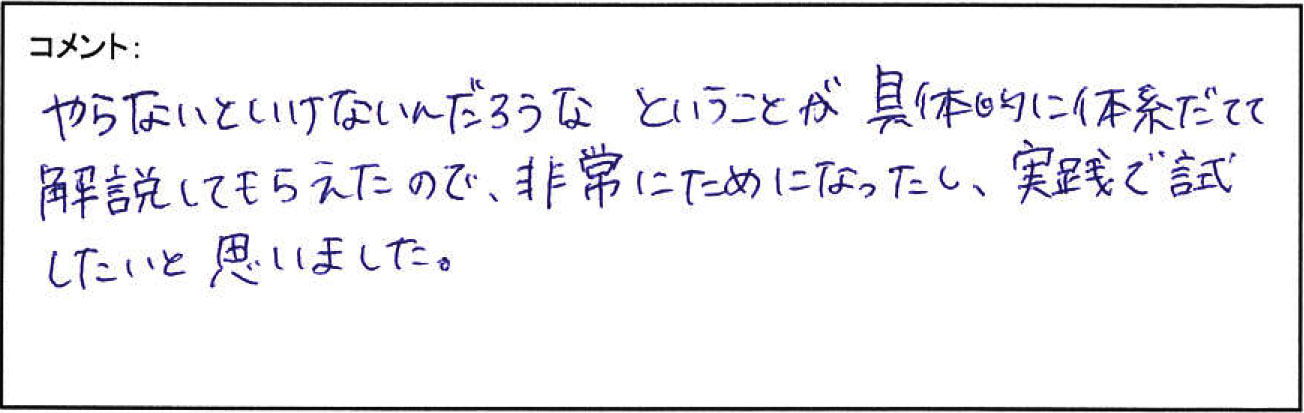 コメント:
やらないといけないんだろうな ということが 具体的に体系だてて
解説してもらえたので、非常にためになったし、実践で試
したいと思いました。